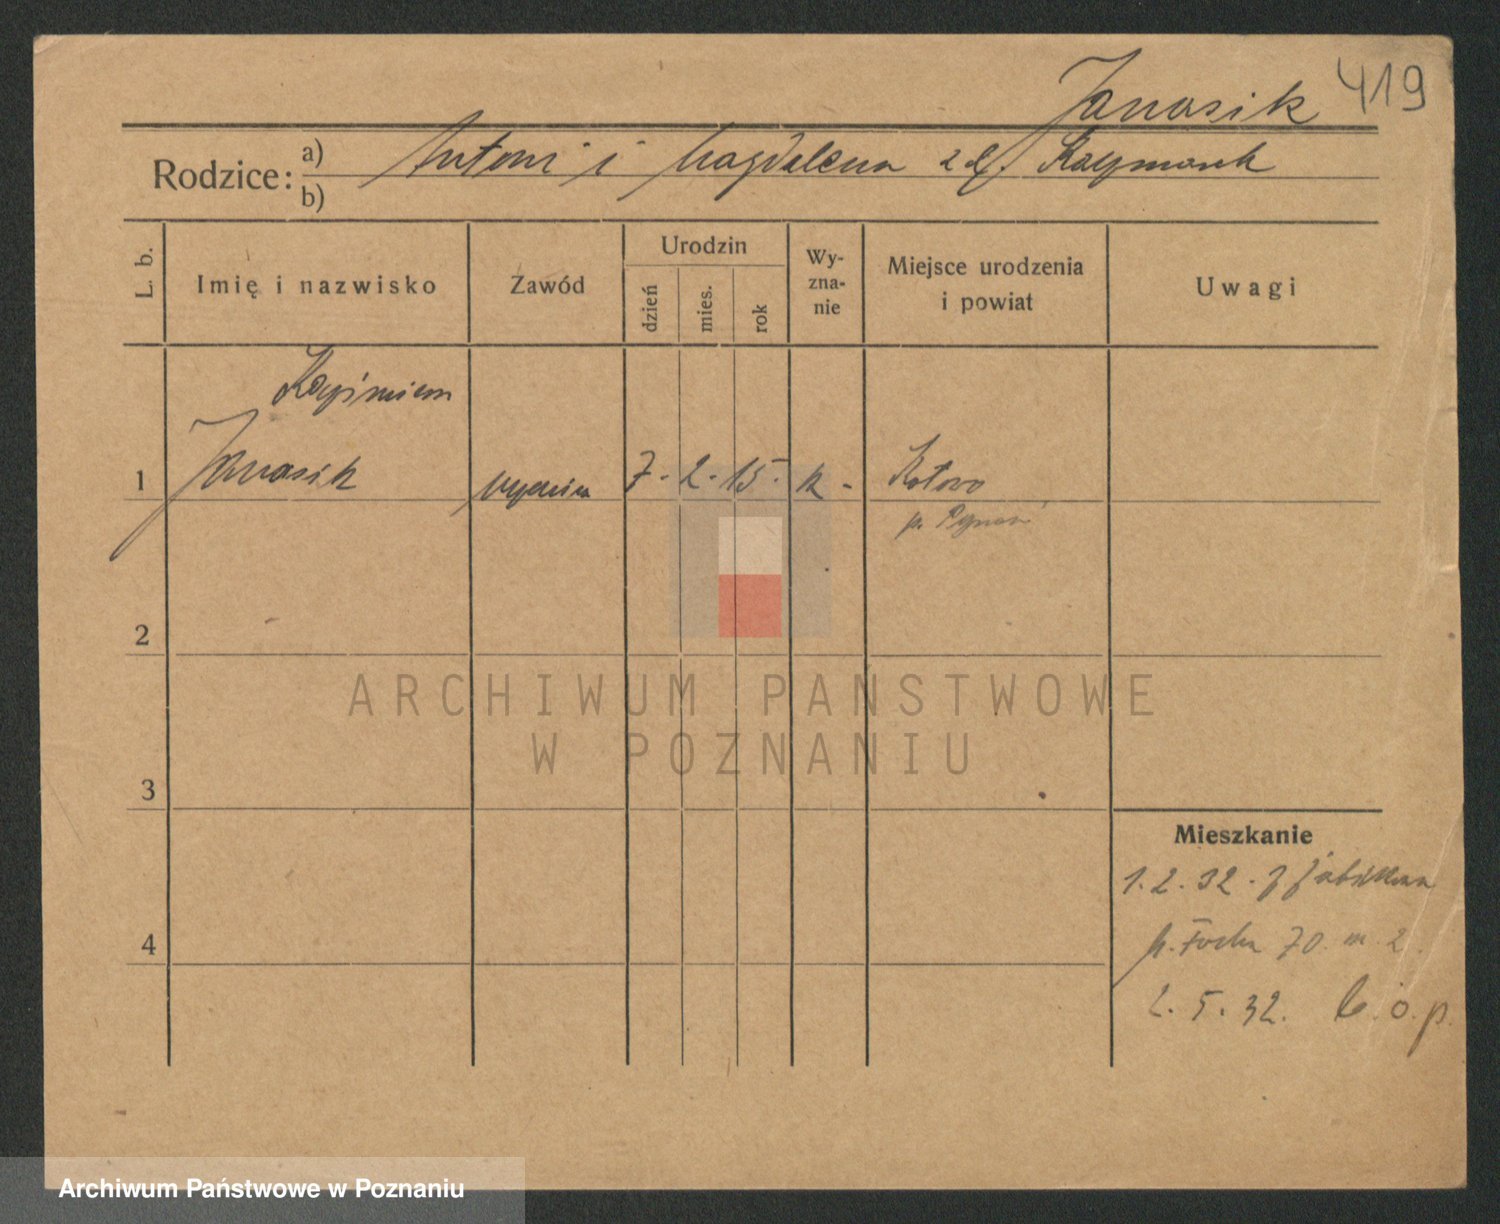 Janasik 419
Rodzice: a) Antoni i Magdalena z d. Kaczmarek
b)
L. b. Imię i nazwisko Zawód Urodzin dzień mies. rok Wyznanie Miejsce urodzenia i powiat Uwagi
Kazimierz
1 Janasik 7. 2. 15. k. Kotowo
p.
2
3
Mieszkanie
1. 2. 32. z
4 Focha 70. m. 2.
2. 5. 32. b. o. p.
ARCHIWUM PAŃSTWOWE
W POZNANIU
Archiwum Państwowe w Poznaniu